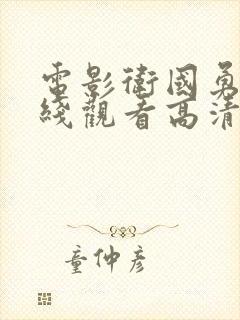 電影衛國勇
綫觀看高清
童仲彥